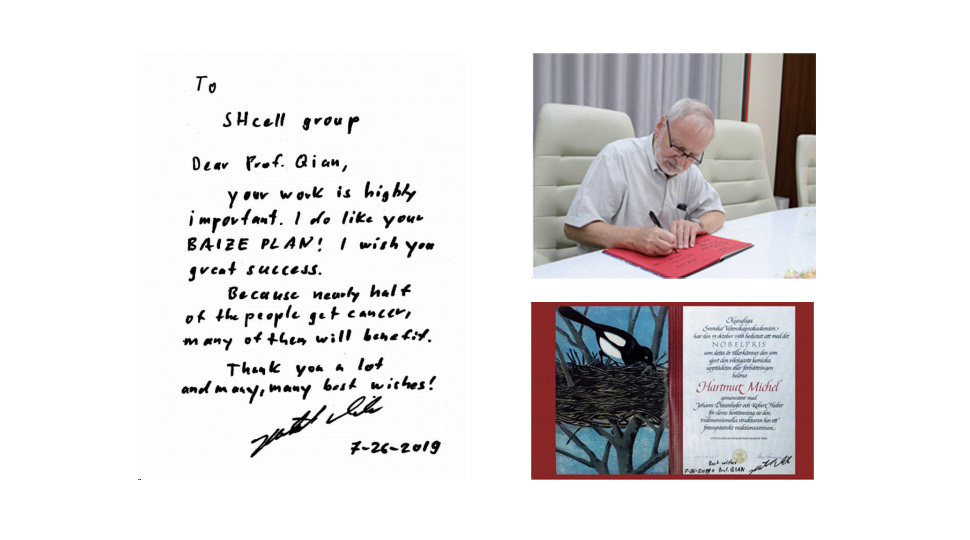 To
SHcell group
Dear Prof. Qian,
your work is highly
important. I do like your
BAIZE PLAN! I wish you
great success.
Because nearly half
of the people get cancer,
many of them will benefit.
Thank you a lot
and many, many best wishes!
7-26-2019
Kungliga
Svenska Vetenskapsakademien
har den 19 oktober 1988 beslutat att med det
NOBELPRIS
som detta år tillerkännes den som
gjort den viktigaste kemiska
upptäckten eller förbättringen
belöna
Hartmut Michel
gemensamt med
Johann Deisenhofer och Robert Huber
för deras bestämning av den
tredimensionella strukturen hos ett
fotosyntetiskt reaktionscentrum
Best wishes
7-26-2019 Prof. QIAN